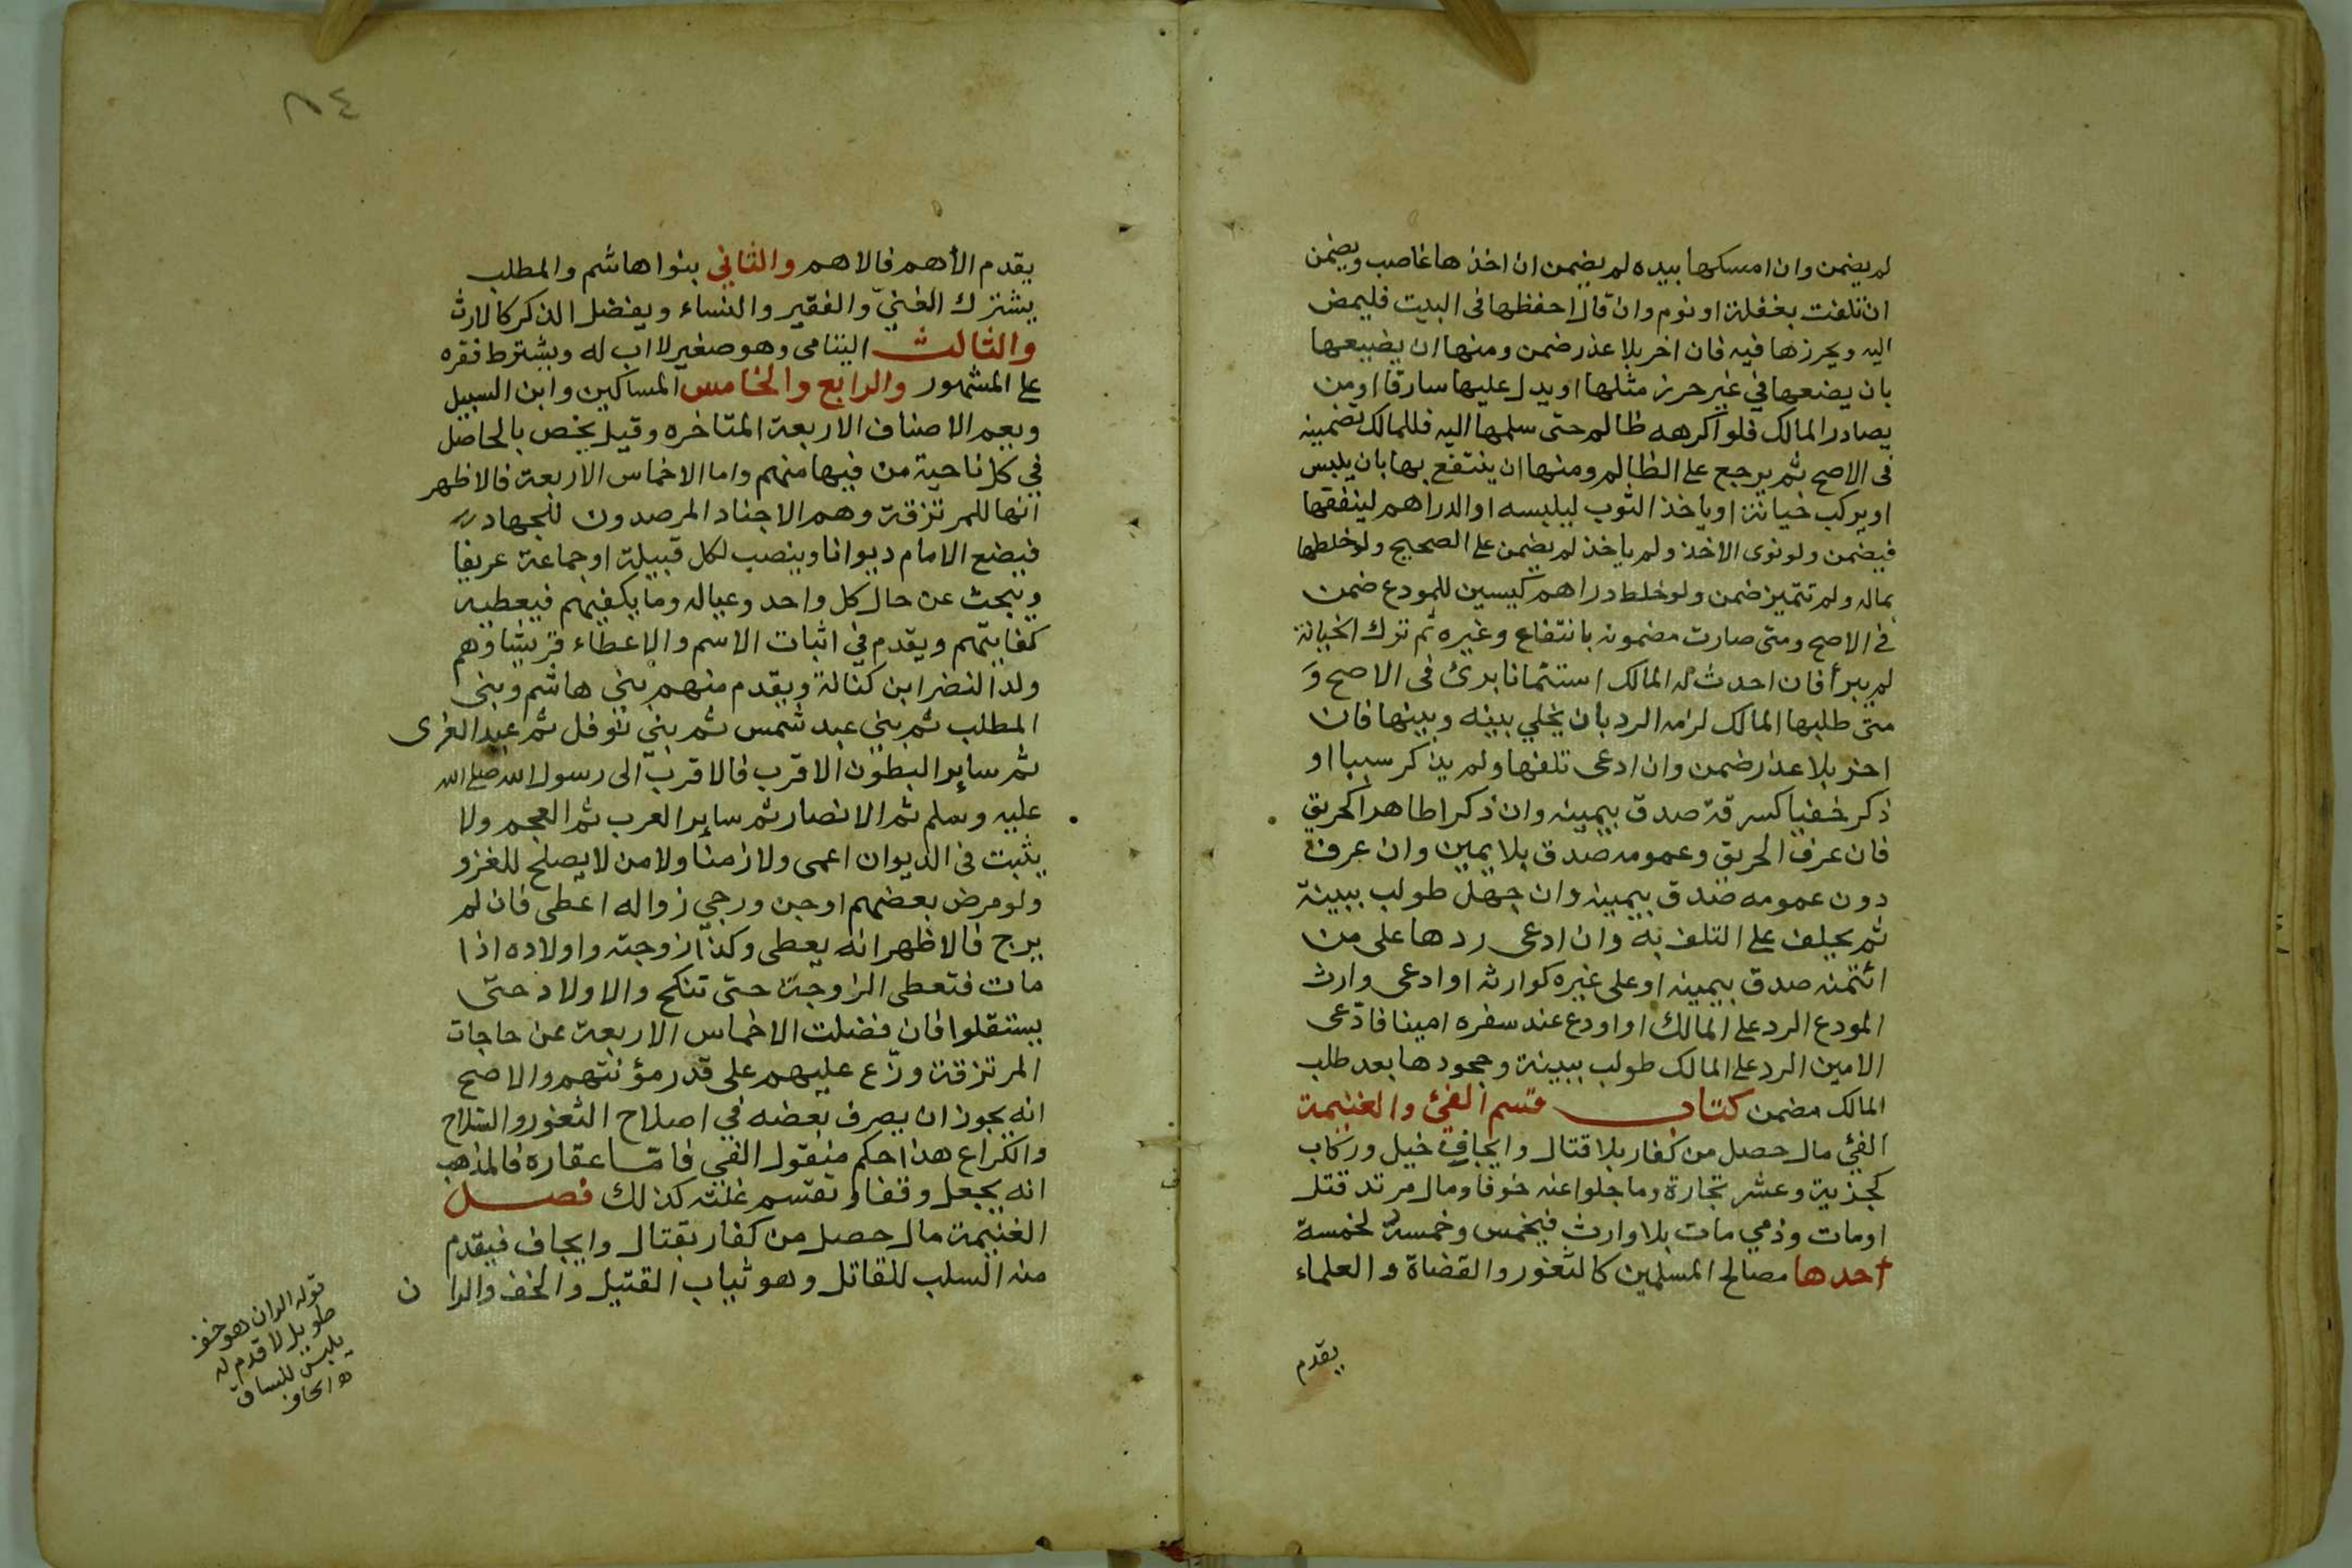 لم يضمن وان امسكها بيده لم يضمن ان اخذها غاصب ويضمن
ان تلفت بغفلة او نوم وان قال احفظها في البيت فليمض
اليه ويحرزها فيه فان اخر بلا عذر ضمن ومنها ان يضيعها
بان يضعها في غير حرز مثلها او يدل عليها سارقا او من
يصادر المالك فلو اكرهه ظالم حتى سلمها اليه فللمالك تضمينه
في الاصح ثم يرجع على الظالم ومنها ان ينتفع بها بان يلبس
او يركب خيانة او ياخذ الثوب ليلبسه او الدراهم لينفقها
فيضمن ولو نوى الاخذ ولم ياخذ لم يضمن على الصحيح ولو خلطها
بماله ولم تتميز ضمن ولو خلط دراهم كيسين للمودع ضمن
في الاصح ومتى صارت مضمونه بانتفاع وغيره ثم ترك الخيانة
لم يبرأ فان احدث له المالك استئمانا برئ في الاصح و
متى طلبها المالك لزمه الرد بان يخلي بينه وبينها فان
اخر بلا عذر ضمن وان ادعى تلفها ولم يذكر سببا او
ذكر خفيا كسرقة صدق بيمينه وان ذكر اظاهرا كحريق
فان عرف الحريق وعمومه صدق بلا يمين وان عرف
دون عمومه صدق بيمينه وان جهل طولب ببينة
ثم يحلف على التلف به وان ادعى ردها على من
ائتمنه صدق بيمينه او على غيره كوارثه او ادعى وارث
المودع الرد على المالك او اودع عند سفره امينا فادّعى
الامين الرد على المالك طولب ببينة وجحودها بعد طلب
المالك مضمن كتاب قسم الفئ والغنيمة
الفئ مال حصل من كفار بلا قتال وايجاف خيل وركاب
كجزية وعشر تجارة وما جلوا عنه خوفا ومال مرتد قتل
او مات وذمي مات بلا وارث فيخمس وخمسة لخمسة
احدها مصالح المسلمين كالثغور والقضاة والعلماء
يقدم
٨٤
يقدم الأهم فالاهم والثاني بنوا هاشم والمطلب
يشترك الغنيّ والفقير والنساء ويفضل الذكر كالارث
والثالث اليتامى وهو صغير لا اب له ويشترط فقره
على المشهور والرابع والخامس المساكين وابن السبيل
ويعم الاصناف الاربعة المتاخره وقيل يخص بالحاصل
في كل ناحية من فيها منهم واما الاخماس الاربعة فالاظهر
انها للمرتزقة وهم الاجناد المرصدون للجهاد
فيضع الامام ديوانا وينصب لكل قبيلة او جماعة عريفا
ويبحث عن حال كل واحد وعياله وما يكفيهم فيعطيه
كفايتهم ويقدم في اثبات الاسم والاعطاء قريشا وهم
ولد النضر ابن كنانة ويقدم منهم بني هاشم وبني
المطلب ثم بني عبد شمس ثم بني نوفل ثم عبد العزى
ثم ساير البطون الاقرب فالاقرب الى رسول الله صلى الله
عليه وسلم ثم الانصار ثم ساير العرب ثم العجم ولا
يثبت في الديوان اعمى ولا زمنا ولا من لا يصلح للغزو
ولو مرض بعضهم او جن ورجي زواله اعطى فان لم
يرج فالاظهر انه يعطى وكذا زوجته واولاده اذا
مات فتعطى الزوجة حتى تنكح والاولاد حتى
يستقلوا فان فضلت الاخماس الاربعة عن حاجات
المرتزقة وزّع عليهم على قدر مؤنتهم والاصح
انه يجوز ان يصرف بعضه في اصلاح الثغور والسلاح
والكراع هذا حكم منقول الفي فامّا عقاره فالمذهب
انه يجعل وقفا وتقسم غلته كذلك فصل
الغنيمة مال حصل من كفار بقتال وايجاف فيقدم
منه السلب للقاتل وهو ثياب القتيل والخف والران
قوله الران هو خف
طويل لا قدم له
يلبس للساق